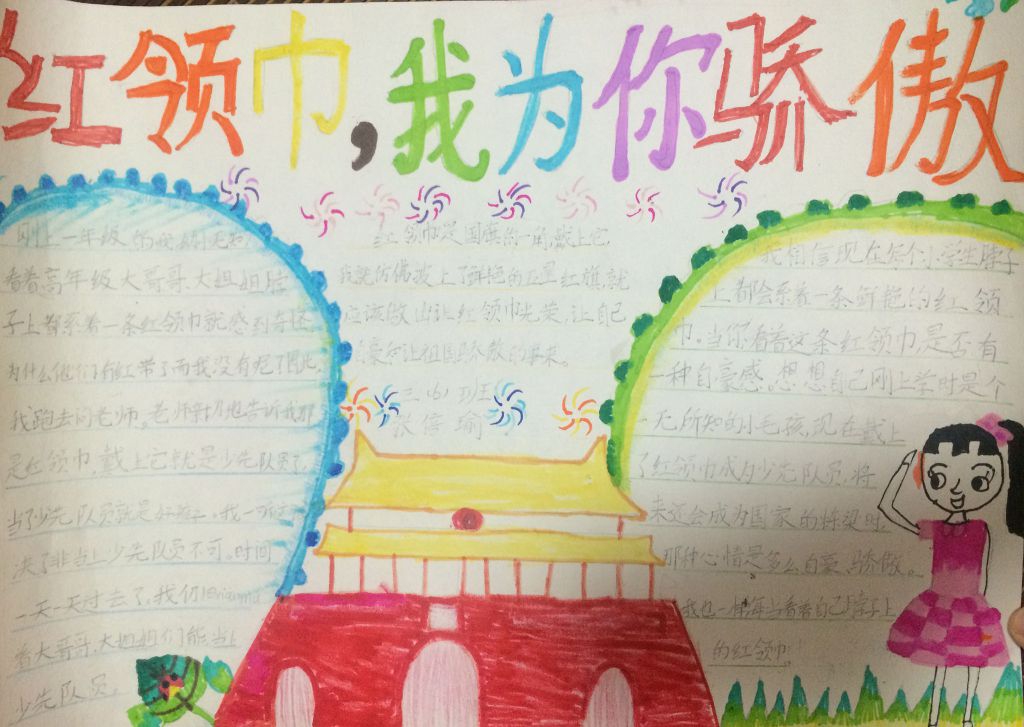 红领巾,我为你骄傲
刚上一年级的我
看着高年级大哥哥、大姐姐脖
子上都系着一条红领巾就感到奇怪
为什么他们有红带了而我没有呢?因此
我跑去问老师。老师告诉我那
是红领巾,戴上它就是少先队员了,
当了少先队员就是好孩子,我一听
决了非当上少先队员不可。时间
一天一天过去了,我们
看大哥哥、大姐姐们能当上
少先队员。
红领巾是国旗的一角,戴上它,
我就仿佛披上了鲜艳的五星红旗,就
应该做出让红领巾光荣,让自己
自豪和让祖国骄傲的事来。
三(6)班
张倍瑜
我相信现在每个小学生脖子
上都会系着一条鲜艳的红领
巾。当你看着这条红领巾,是否有
一种自豪感。想想自己刚上学时是个
一无所知的小毛孩,现在戴上
了红领巾成为少先队员,将
来还会成为国家的栋梁时,
那种心情是多么自豪、骄傲。
我也一样每当看着自己脖子上
的红领巾